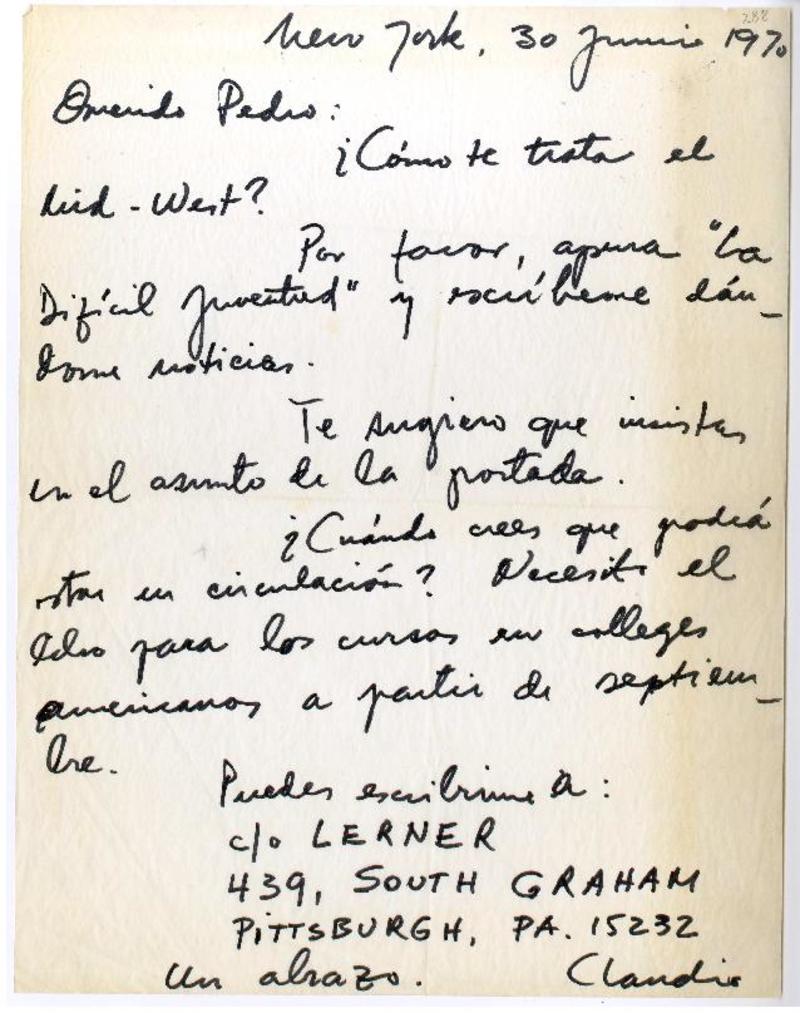 288
New York, 30 Junio 1970
Querido Pedro:
¿Cómo te trata el
Mid-West?
Por favor, apura "La
Difícil Juventud" y escríbeme dán-
dome noticias.
Te sugiero que insistas
en el asunto de la portada.
¿Cuándo crees que podrá
estar en circulación? Necesito el
libro para los cursos en colleges
americanos a partir de septiem-
bre.
Puedes escribirme a:
c/o LERNER
439, SOUTH GRAHAM
PITTSBURGH, PA. 15232
Un abrazo. Claudio